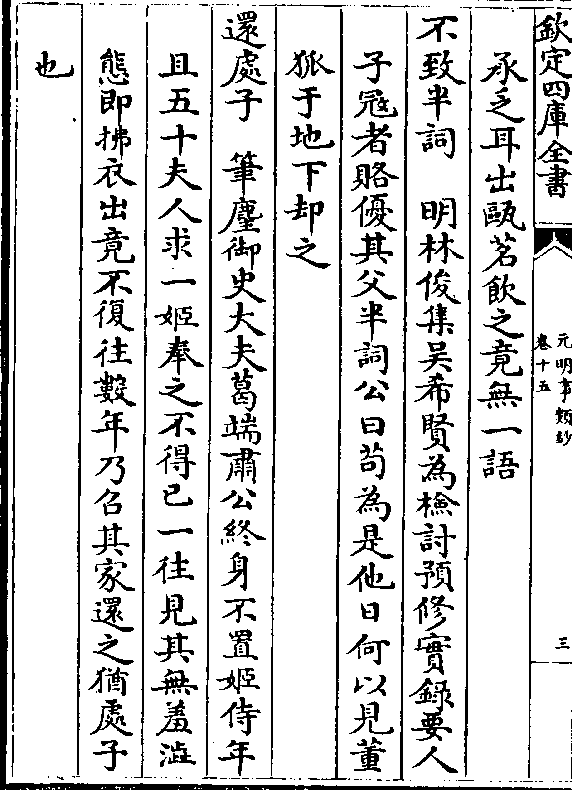 欽定四庫全書
元明事類鈔
卷十五
三
承乏耳出甌茗飲之竟無一語
不致半詞　明林俊集吳希賢為檢討預修實錄要人
子冠者賂優其父半詞公曰苟為是他日何以見董
狐于地下却之
還處子　筆麈御史大夫葛端肅公終身不置姬侍年
且五十夫人求一姬奉之不得已一往見其無羞澁
態即拂衣出竟不復往數年乃召其家還之猶處子
也